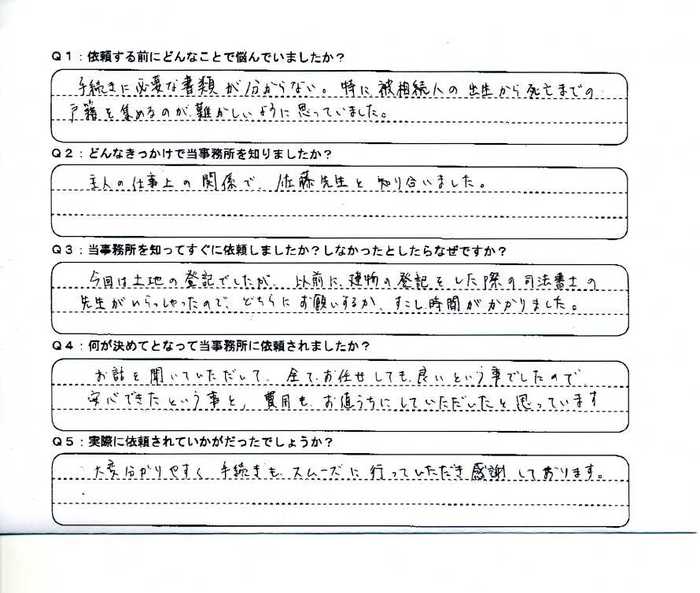 Q1：依頼する前にどんなことで悩んでいましたか？
手続きに必要な書類が分からない。特に被相続人の出生から死亡までの
戸籍を集めるのが難かしいように思っていました。
Q2：どんなきっかけで当事務所を知りましたか？
主人の仕事上の関係で、佐藤先生と知り合いました。
Q3：当事務所を知ってすぐに依頼しましたか？しなかったとしたらなぜですか？
今回は土地の登記でしたが、以前に建物の登記をした際の司法書士の
先生がいらっしゃったので、どちらにお願いするか、すこし時間がかかりました。
Q4：何が決めてとなって当事務所に依頼されましたか？
お話を聞いていただいて、全てお任せしても良いという事でしたので
安心できたという事と、費用も、お値うちにしていただいたと思っています
Q5：実際に依頼されていかがだったでしょうか？
大変分かりやすく、手続きも、スムーズに行っていただき感謝しております。